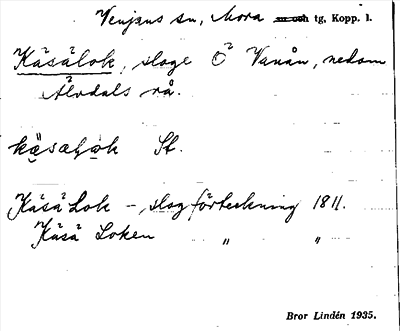 Venjans sn, Mora s̶n̶ ̶o̶c̶h̶ tg, Kopp. l.
Käsälok, sloge Ö Vanån, nedom
Älvdals rå.
käsalok St.
Käsä Lok – slogförteckning 1811.
Käsä Loken " "
Bror Lindén 1935.